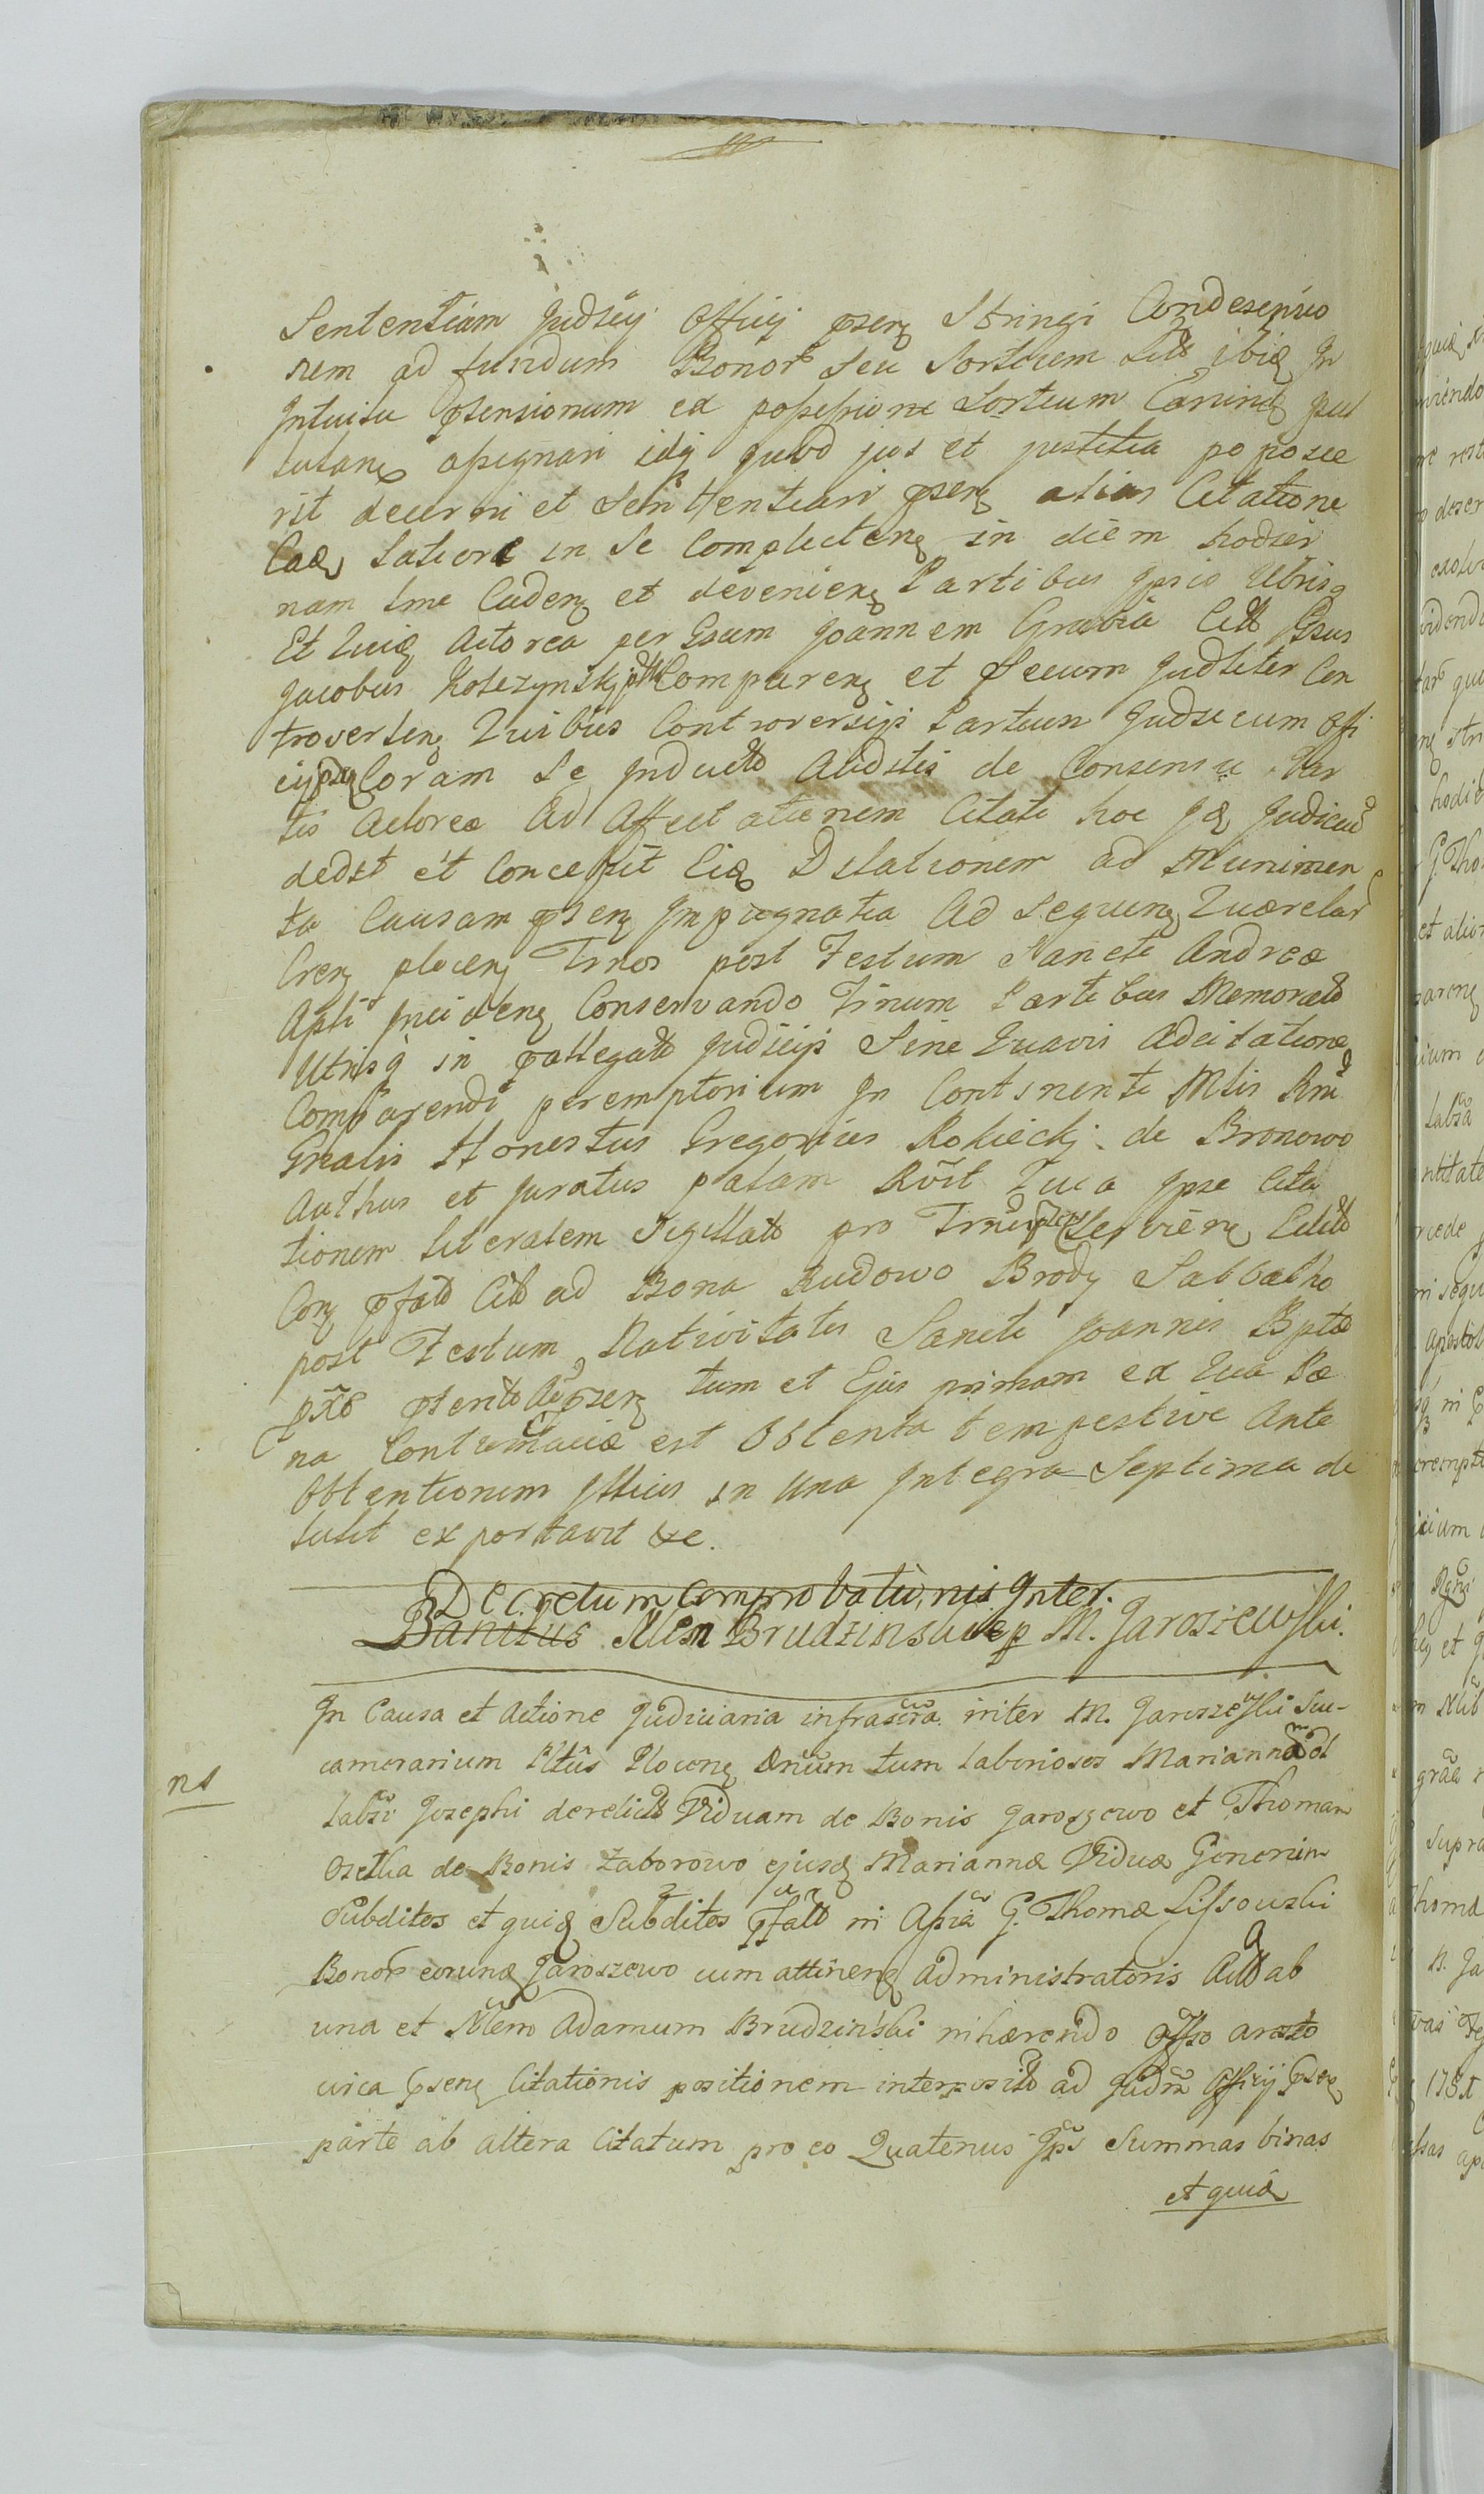 Sententiam Judsÿ Officÿ pseng Stringi Condescenso
rem ad fundum Bonor Seu Sortium ibiq In
Intuitu ptensionum ex possessione Sortium
assignari idq quod jus et justitia poposce
rit decerni et Sententiari pseng alias Citatione
Caq latiore in Se Complecteng in diem hodier
nam tme Cadeng et devenieng Partibus Ipsis Utrisq
Et Quiq Actorea per Gsum Joannem Grabia Citt Gsus
Jacobus Kolczynski Compareng et Secum Judliter Con
troverteng Quibus Controversijs Partium Judicium Offi
cij Coram Se Inductis Auditis de Consensu Par
tis Actoreæ Ad Affectationem Citati hoc Iq Judiciu
dedit et Concessit Eiq Dilationem ad Munimen
ta Causam pseng Impugnatia Ad Sequeng Quærelar
Creng ploceng Trnos post Festum Sancti Andreæ
Apli incideng Conservando Trnum Partibus Memorato
Utrisq in pallegato Judicijs Sine Quavis Adcitatione
Comparendi peremptorium In Continenti Mlis Rni
Gnalis Honestus Gregorius Rokiecki de Bronowo
Authus et Juratus palam Rvit Quia Ipse Cita
tionem Literalem Sigillatt pro Trnis Servieng Edit
Con pfatt Citt ad Bona Rudowo Brody Sabbatho
post Festum Nativitatis Sancti Joannis Bptæ
pxo pterito pseng tum et Ejus primam ex Qua Pæ
na Contumaciæ est Obtenta tempestive Ante
Obtentionem Illius in Una Integra Septima de
tulit exportavit &c.
Decretum Comprobationis Inter.
Banitus Mem Brudzinski ep M. Jaroszewski.
In Causa et Actione Judiciaria infrascra inter M. Jaroszewski Suc-
camerarium Pltus Ploceng Dnum tum laboriosos Mariannam ol
ns
labsi Josephi derelictt Viduam de Bonis Jaroszewo et Thomam
Osetka de Bonis Zaborowo ejusq Mariannæ Viduæ Generum
Subditos et quiq Subditos pfatt in Assia G. Thomæ Lissowski
Bonor eorunq Jaroszewo cum attineng administratoris Actt ab
una et Mem Adamum Brudzinski inhærendo Offso aresto
circa pseng Citationis positionem interposito ad Judm Officij pseng
parte ab altera Citatum pro eo Quatenus Ips Summas binas
et quiq